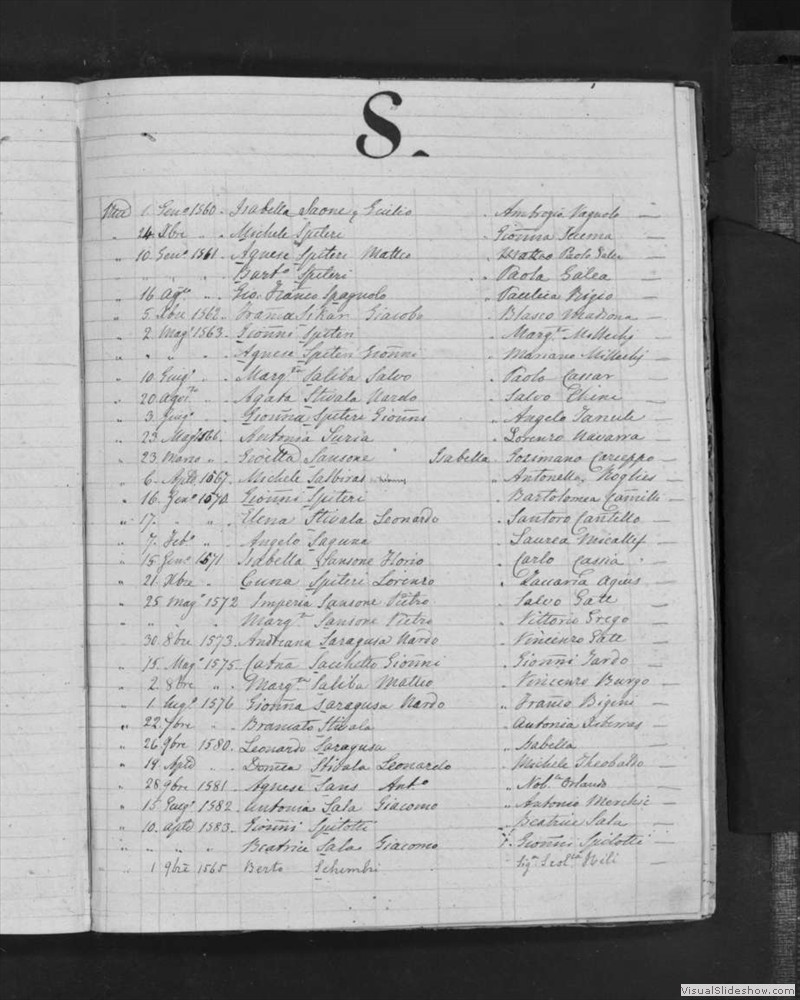 S.
1 Genº 1560. Isabella Saone Ambrogio Vagnolo
24 Xbre " " Michele Spiteri Gioñna
10 Genº 1561. Agnese Spiteri Matteo Matteo Paolo
" " " Bartº Spiteri Paola Galea
16 Agº " " Gio. Franco Spagnolo
5 Xbre 1562. Giacobo Blasco
2 Magº 1563. Gioñni Spiteri Margta
" " " Agnese Spiteri Gioñni Mariano
10 Giugº " " Margta Saliba Salvo Paolo Cassar
20 " " Agata Stivala Nardo Salvo
3 Giugº " " Gioñna Spiteri Gioñni Angelo
23 Magº 1566. Antonia Suria Lorenzo Navarra
23 Marzo " " Sansone Isabella
6 Aple 1567. Michele Antonella
16 Genº 1570. Gioñni Spiteri Bartolomea Camilli
17 " " " Elena Stivala Leonardo Santoro Cantello
7 Febº " " Angelo Saguna Laurea Micallef
15 Genº 1571 Isabella Sansone Florio Carlo Cassia
21 Xbre " Cuna Spiteri Lorenzo Zaccaria Agius
25 Magº 1572 Imperia Sansone Pietro Salvo Gate
" " " Margta Sansone Pietro Vittorio Grego
30 8bre 1573. Andreana Saragusa Nardo Vincenzo Gate
15 Magº 1575. Catña Sacchetto Gioñni Gioñni
2 8bre " " Margta Saliba Matteo Vincenzo Burgo
1 Lugº 1576 Gioñna Saragusa Nardo Franco
22 7bre " Bramato Stivala Antonia
26 9bre 1580. Leonardo Saragusa Isabella
18 " Domca Stivala Leonardo Michele Theobaldo
28 9bre 1581. Agnese Sans Antº Nob. Orlando
15 Giugº 1582. Antonia Sala Giacomo Antonio
10 1583. Gioñni Spilotti Beatrice Sala
" " " Beatrice Sala Giacomo Gioñni Spilotti
1 9bre 1565 Berto Schembri
VisualSlideshow.com